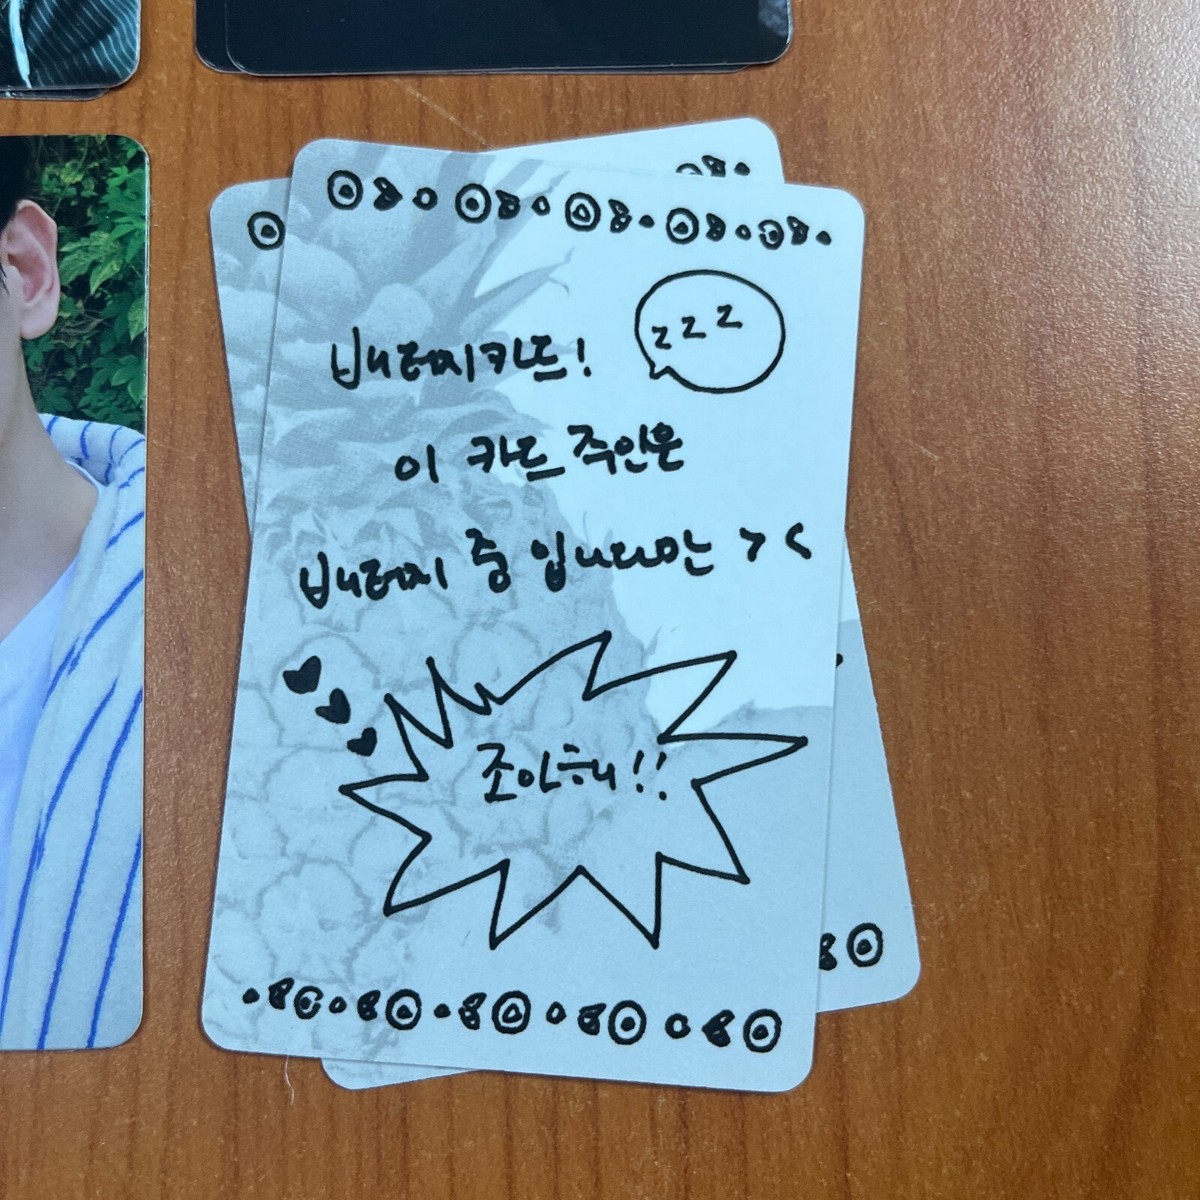 배터지카드!
zzz
이 카드 주인은
배터지 중 입니다만 > <
조아해!!